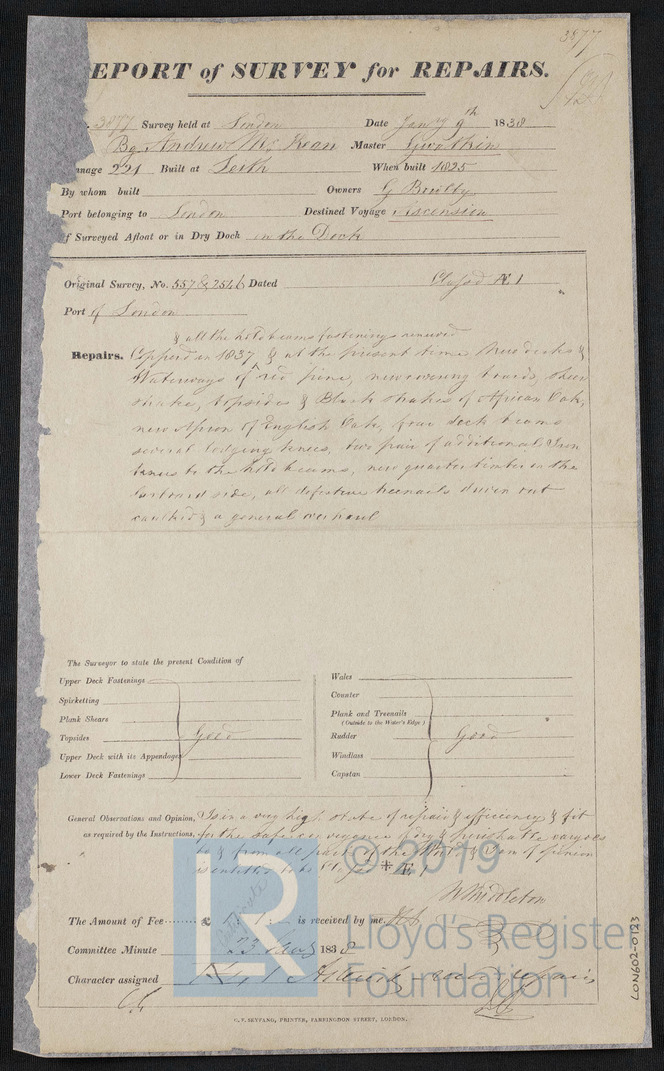 3877
EPORT of SURVEY for REPAIRS.
3877 Survey held at London Date Jany 9th 1838
Bg. Andrew Mc Kean Master Gwatkin
nnage 221 Built at Leith When built 1825
By whom built Owners G Bailby
Port belonging to London Destined Voyage Ascension
f Surveyed Afloat or in Dry Dock in the Dock
Original Survey, No. 557 & 2546 Dated Classd Æ 1
Port of London
& all the hold beams fastenings renewed
Repairs. Copperd in 1837 & at the present time New decks &
Waterways of red pine, new covering boards, sheer
strake, topsides & Black strakes of African Oak,
new Apron of English Oak, four deck beams
several lodging knees, two pair of additional Iron
knees to the hold beams, new quarter timber on the
larboard side, all defective treenails driven out
caulked & a general overhaul
The Surveyor to state the present Condition of
Upper Deck Fastenings
Spirketting
Plank Shears
Topsides Good
Upper Deck with its Appendages
Lower Deck Fastenings
Wales
Counter
Plank and Treenails
(Outside to the Water's Edge)
Rudder Good
Windlass
Capstan
General Observations and Opinion, Is in a very high state of repair & efficiency & fit
as required by the Instructions, for the safe conveyance of dry & perishable cargoes
to & from all parts of the World & I am of opinion
is entitled to be Classed * Æ 1
W Middleton
The Amount of Fee £ 1.1. is received by me,
Committee Minute 23 Jany 1838
Character assigned
G. F. SEYFANG, PRINTER, FARRINGDON STREET, LONDON.
© 2019
Lloyd's Register
Foundation
LR
LON602-0123